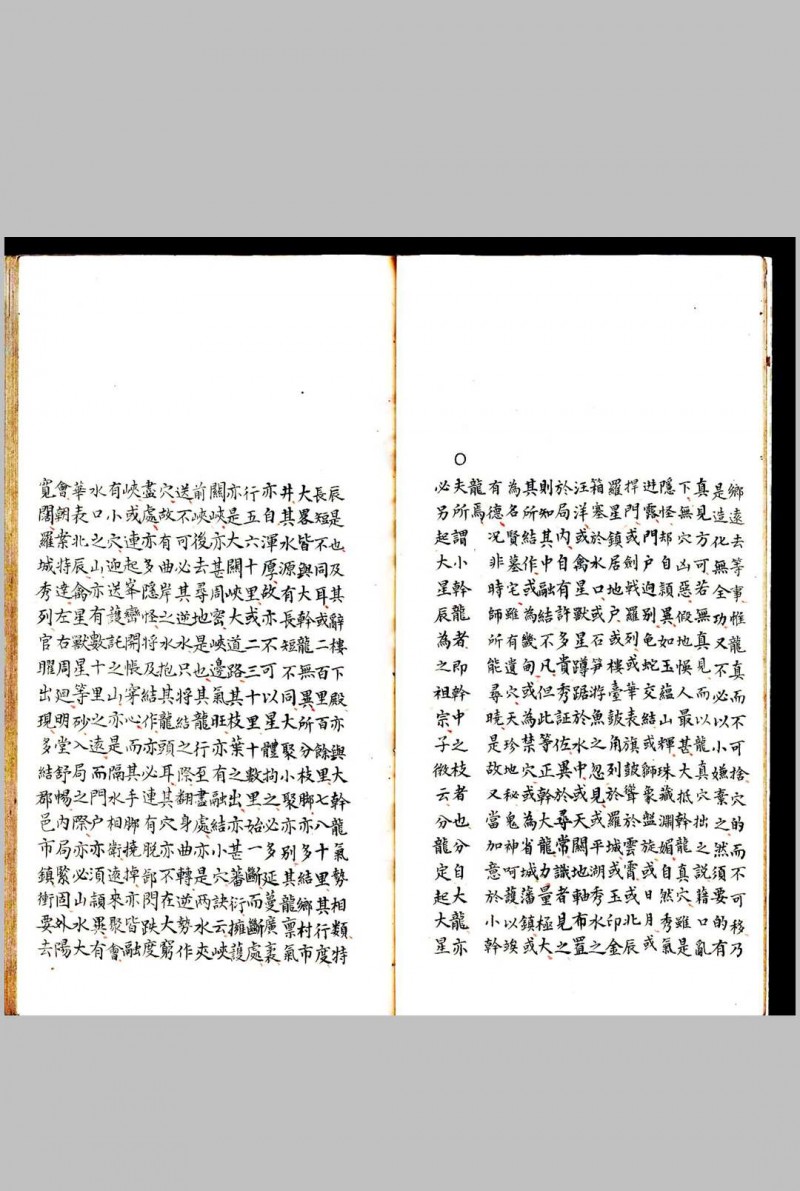 鄉遠去等事惟龍真而不可捨穴的而不可移乃
是造化無全功又不必以小嫌棄之然須要的有
真見方可若無真見而以龍真穴拙之說藉口亂
下無穴凶惡假地慢人最甚大抵幹龍真穴雖是
隱怪却自頴異如玉蘊山輝珠藏淵媚自然秀氣
迸露門戶迥別龜蛇交結或獅象盤旋或日月
捍門或旗戟羅列或華表旗皷聳於雲霄或北辰
羅星鎮居地戶或樓臺皷角列於羅城或玉印金
箱塞於水口或石笋游魚忽見於平湖秀水之
汪洋或禽星獸石蹲踞水中或天關地軸布置
於局內自有許多貴秀証佐異於尋常識者見之
則知其中融結不凡但此等正幹大龍力量極大
其所結作或為畿甸或為禁穴或為省城藩鎮或
為名賢墓宅雖有遺穴天珍地秘鬼神呵護以竢
有德況非時師所能尋曉是故又當加意於小幹
龍焉
○夫所謂小幹龍者即幹中之枝者也分自大龍亦
必另起大星辰為之祖宗子微云分龍定起大星
辰是也及其辭樓下殿亦與大幹龍氣勢相類特
長短不同耳或二百里百餘里七八十里其行度
大畧皆與大幹龍無異所分枝脚亦多結鄉村市
井其水源有長短不同大聚小聚亦別其龍稟氣
亦自渾厚故亦不可以星體拘之必多延蔓廣袤
行五六十里或二三十里十數里始一斷而斷處
亦是大關峽大路其枝葉之出亦甚蕃衍擁護
關峽亦甚周密峽邊氣旺亦有融結小穴訣云峽
前峽後去尋地是也其龍行至盡處亦是兩水夾
送不可必其逆水只將結之際翻身曲轉逆勢作
穴故有曲岸之水抱其龍頭耳其穴亦不在大窮
盡處亦多隱怪將及結作亦必連有脫卸閃跌度
峽或連起峯巒開帳穿心而其手脚撓棹亦皆融
有小穴迎送護託之山亦是隔水相衛遠來聚會
水口之山亦有數十里之遠而門戶亦須頴異有
華表北辰禽星獸星等砂入局之際亦必山水大
會朝案特達左右周廻明堂舒暢內局緊固外陽
寬闊羅城秀列官曜出現多結郡邑市鎮衝要去